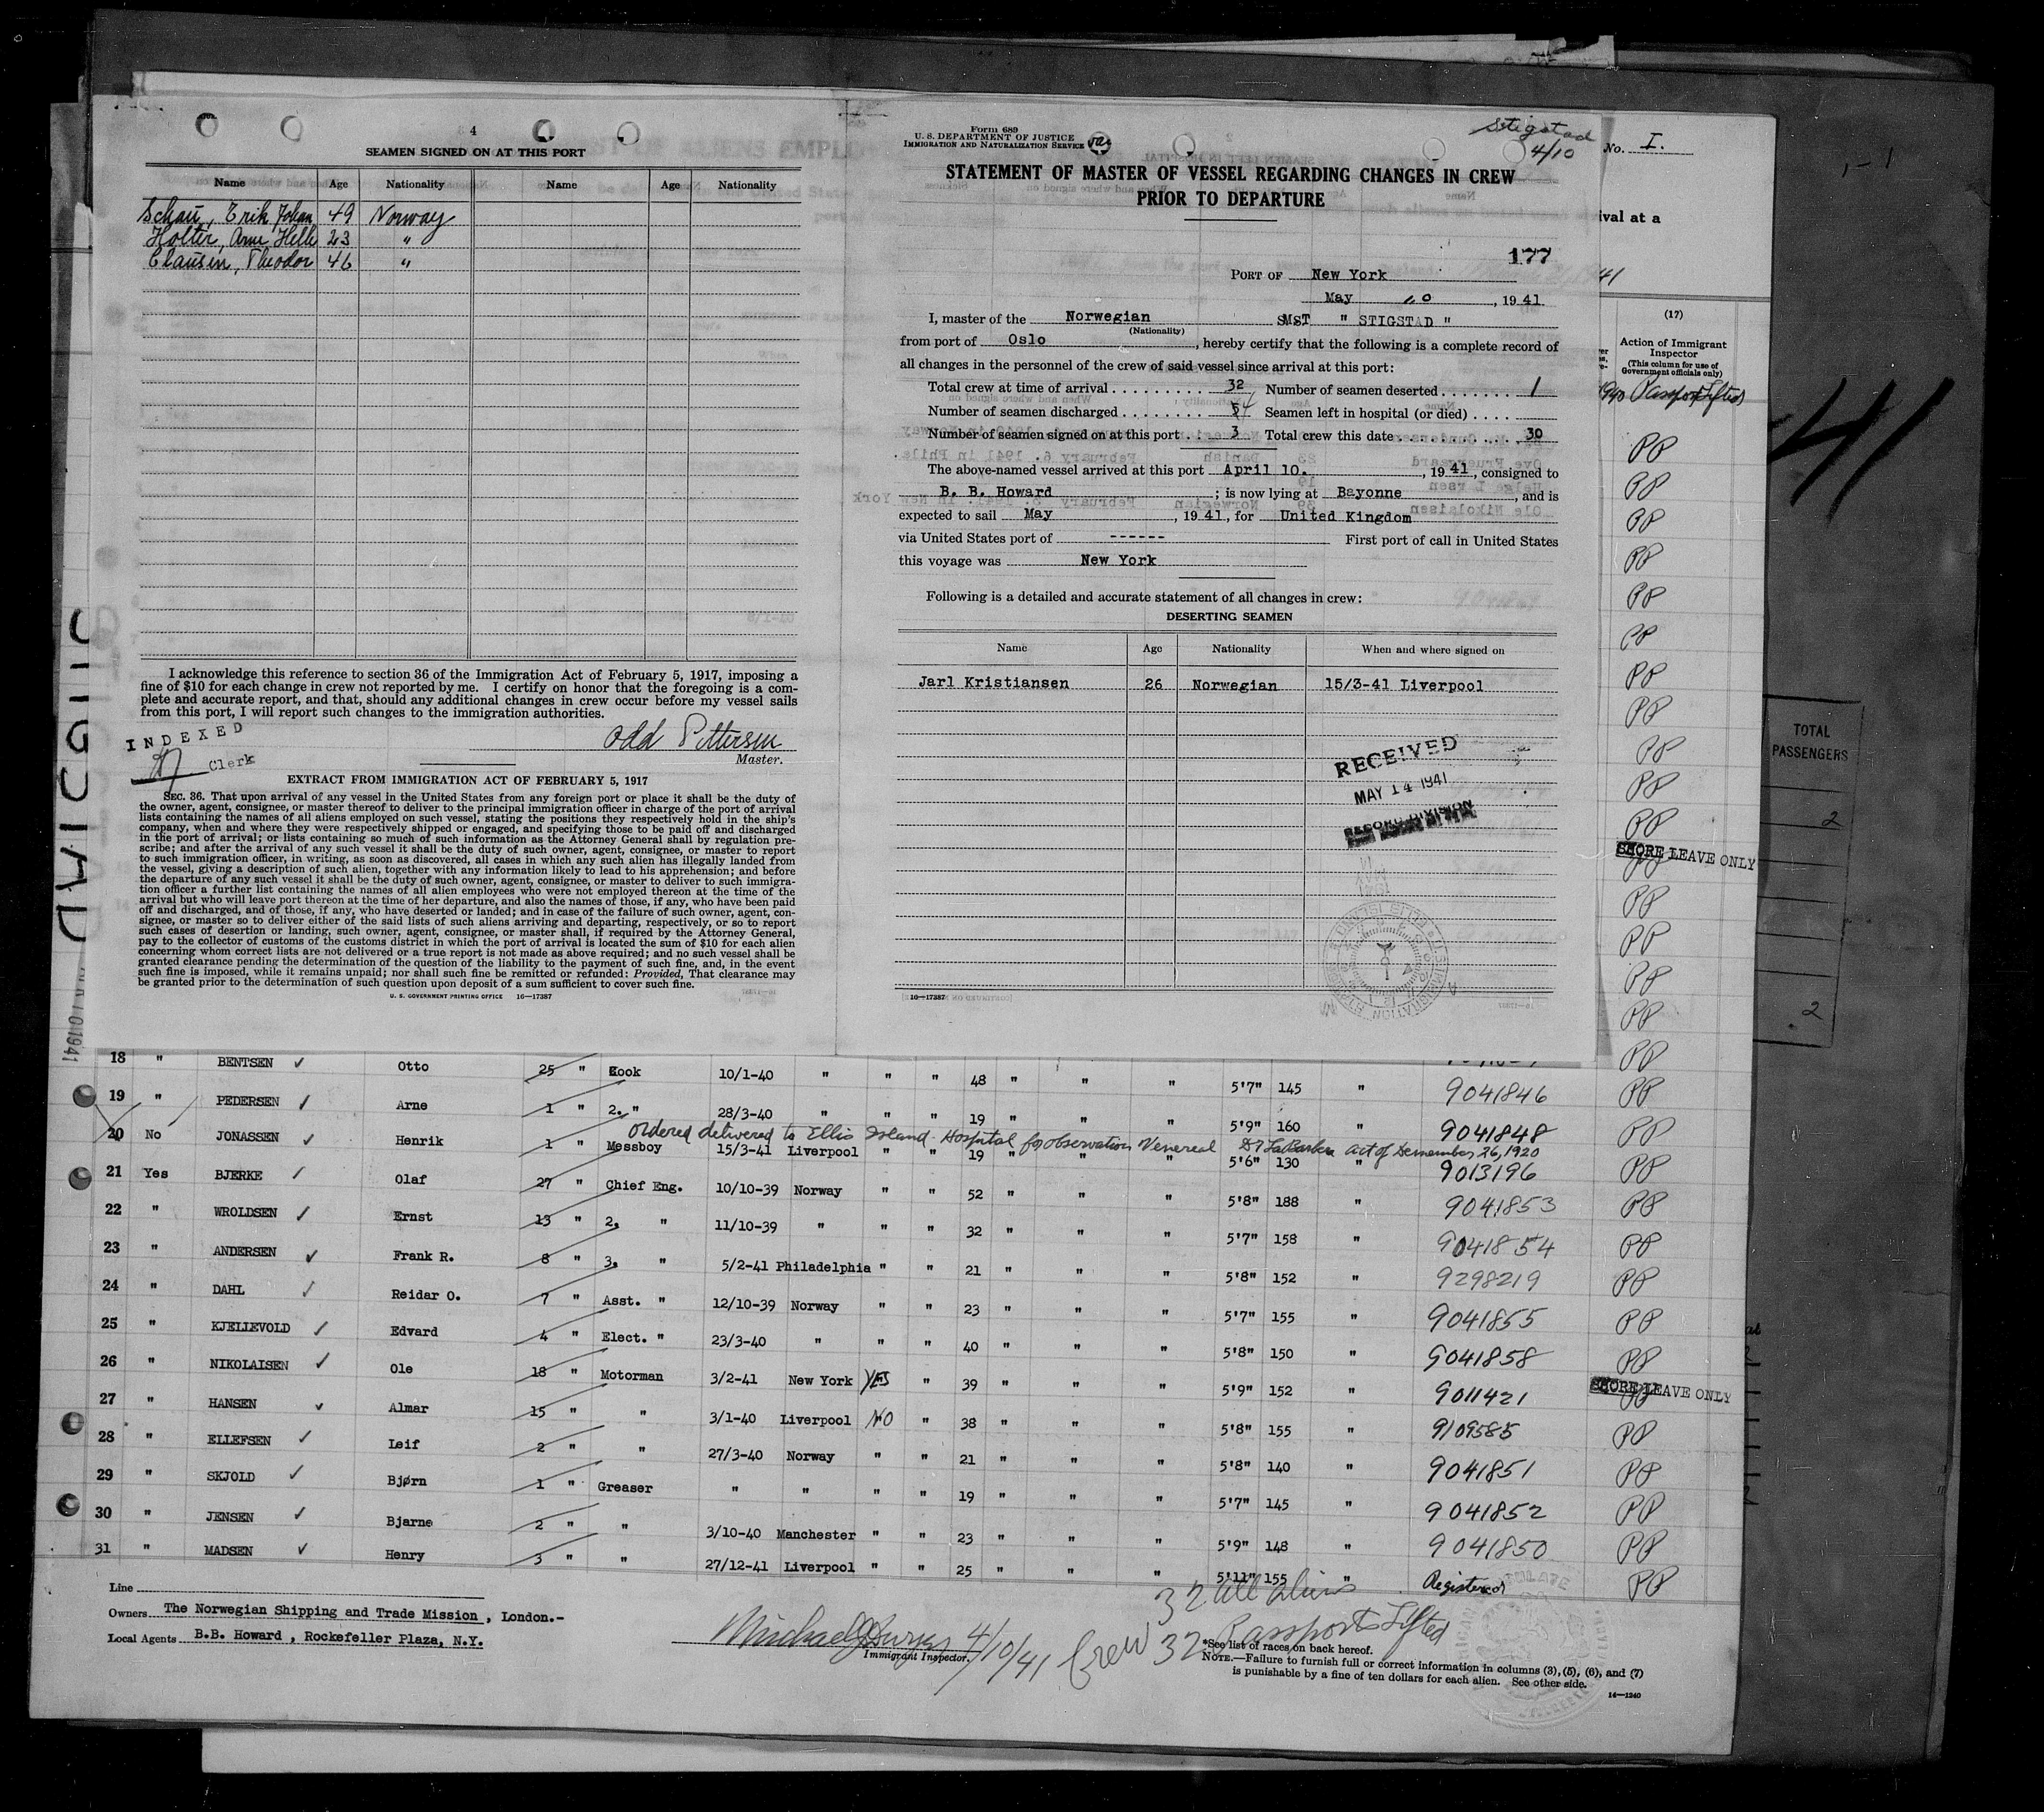 4
SEAMEN SIGNED ON AT THIS PORT
Name Age Nationality Name Age Nationality
Schau, Erik Johan 49 Norway
Holter, Arne Helle 23 "
Clausen, Theodor 46 "
I acknowledge this reference to section 36 of the Immigration Act of February 5, 1917, imposing a
fine of $10 for each change in crew not reported by me. I certify on honor that the foregoing is a com-
plete and accurate report, and that, should any additional changes in crew occur before my vessel sails
from this port, I will report such changes to the immigration authorities.
Odd Pettersen
Master.
INDEXED
Clerk
EXTRACT FROM IMMIGRATION ACT OF FEBRUARY 5, 1917
SEC. 36. That upon arrival of any vessel in the United States from any foreign port or place it shall be the duty of
the owner, agent, consignee, or master thereof to deliver to the principal immigration officer in charge of the port of arrival
lists containing the names of all aliens employed on such vessel, stating the positions they respectively hold in the ship's
company, when and where they were respectively shipped or engaged, and specifying those to be paid off and discharged
in the port of arrival; or lists containing so much of such information as the Attorney General shall by regulation pre-
scribe; and after the arrival of any such vessel it shall be the duty of such owner, agent, consignee, or master to report
to such immigration officer, in writing, as soon as discovered, all cases in which any such alien has illegally landed from
the vessel, giving a description of such alien, together with any information likely to lead to his apprehension; and before
the departure of any such vessel it shall be the duty of such owner, agent, consignee, or master to deliver to such immigra-
tion officer a further list containing the names of all alien employees who were not employed thereon at the time of the
arrival but who will leave port thereon at the time of her departure, and also the names of those, if any, who have been paid
off and discharged, and of those, if any, who have deserted or landed; and in case of the failure of such owner, agent, con-
signee, or master so to deliver either of the said lists of such aliens arriving and departing, respectively, or so to report
such cases of desertion or landing, such owner, agent, consignee, or master shall, if required by the Attorney General,
pay to the collector of customs of the customs district in which the port of arrival is located the sum of $10 for each alien
concerning whom correct lists are not delivered or a true report is not made as above required; and no such vessel shall be
granted clearance pending the determination of the question of the liability to the payment of such fine, and, in the event
such fine is imposed, while it remains unpaid; nor shall such fine be remitted or refunded: Provided, That clearance may
be granted prior to the determination of such question upon deposit of a sum sufficient to cover such fine.
U. S. GOVERNMENT PRINTING OFFICE 16—17387
Form 689
U. S. DEPARTMENT OF JUSTICE
IMMIGRATION AND NATURALIZATION SERVICE
Stigstad
4/10
STATEMENT OF MASTER OF VESSEL REGARDING CHANGES IN CREW
PRIOR TO DEPARTURE
177
PORT OF New York
May 10, 1941
I, master of the Norwegian MST " STIGSTAD "
(Nationality)
from port of Oslo, hereby certify that the following is a complete record of
all changes in the personnel of the crew of said vessel since arrival at this port:
Total crew at time of arrival 32 Number of seamen deserted 1
Number of seamen discharged 4 Seamen left in hospital (or died)
Number of seamen signed on at this port 3 Total crew this date 30
The above-named vessel arrived at this port April 10., 1941, consigned to
B. B. Howard; is now lying at Bayonne, and is
expected to sail May, 1941, for United Kingdom
via United States port of ------ First port of call in United States
this voyage was New York
Following is a detailed and accurate statement of all changes in crew:
DESERTING SEAMEN
Name Age Nationality When and where signed on
Jarl Kristiansen 26 Norwegian 15/3-41 Liverpool
RECEIVED
MAY 14 1941
RECORD DIVISION
16—17387
No. I.
ival at a
41
(17)
Action of Immigrant
Inspector
(This column for use of
Government officials only)
1940 Passport Lifted
PP
PP
PP
PP
PP
PP
PP
PP
PP
PP
PP
SHORE LEAVE ONLY
PP
PP
PP
PP
PP
PP
41
TOTAL
PASSENGERS
2
2
18 " BENTSEN ✓ Otto 25 " Cook 10/1-40 " " " 48 " " " 5'7" 145 "
19 " PEDERSEN ✓ Arne 1 " 2. " 28/3-40 " " " 19 " " " 5'9" 160 " 9041846 PP
Ordered delivered to Ellis Island Hospital for observation Venereal Dr LaBarbera act of December 26, 1920
20 No JONASSEN ✓ Henrik 1 " Messboy 15/3-41 Liverpool " " 19 " " " 5'6" 130 " 9041848 PP
21 Yes BJERKE ✓ Olaf 27 " Chief Eng. 10/10-39 Norway " " 52 " " " 5'8" 188 " 9013196 PP
22 " WROLDSEN ✓ Ernst 13 " 2. " 11/10-39 " " " 32 " " " 5'7" 158 " 9041853 PP
23 " ANDERSEN ✓ Frank R. 8 " 3. " 5/2-41 Philadelphia " " 21 " " " 5'8" 152 " 9041854 PP
24 " DAHL ✓ Reidar O. 7 " Asst. " 12/10-39 Norway " " 23 " " " 5'7" 155 " 9298219 PP
25 " KJELLEVOLD ✓ Edvard 4 " Elect. " 23/3-40 " " " 40 " " " 5'8" 150 " 9041855 PP
26 " NIKOLAISEN ✓ Ole 18 " Motorman 3/2-41 New York YES " 39 " " " 5'9" 152 " 9041858 PP
SHORE LEAVE ONLY
27 " HANSEN ✓ Almar 15 " " 3/1-40 Liverpool NO " 38 " " " 5'8" 155 " 9011421 PP
28 " ELLEFSEN ✓ Leif 2 " " 27/3-40 Norway " " 21 " " " 5'8" 140 " 9109585 PP
29 " SKJOLD ✓ Bjørn 1 " Greaser " " " " 19 " " " 5'7" 145 " 9041851 PP
30 " JENSEN ✓ Bjarne 2 " " 3/10-40 Manchester " " 23 " " " 5'9" 148 " 9041852 PP
31 " MADSEN ✓ Henry 3 " " 27/12-41 Liverpool " " 25 " " " 5'11" 155 " 9041850 PP
Registered PP
Line
Owners The Norwegian Shipping and Trade Mission, London.-
Local Agents B.B. Howard, Rockefeller Plaza, N.Y.
32 all aliens
4/10/41 Crew 32 Passports Lifted
Immigrant Inspector.
*See list of races on back hereof.
NOTE.—Failure to furnish full or correct information in columns (3), (5), (6), and (7)
is punishable by a fine of ten dollars for each alien. See other side.
14—1240